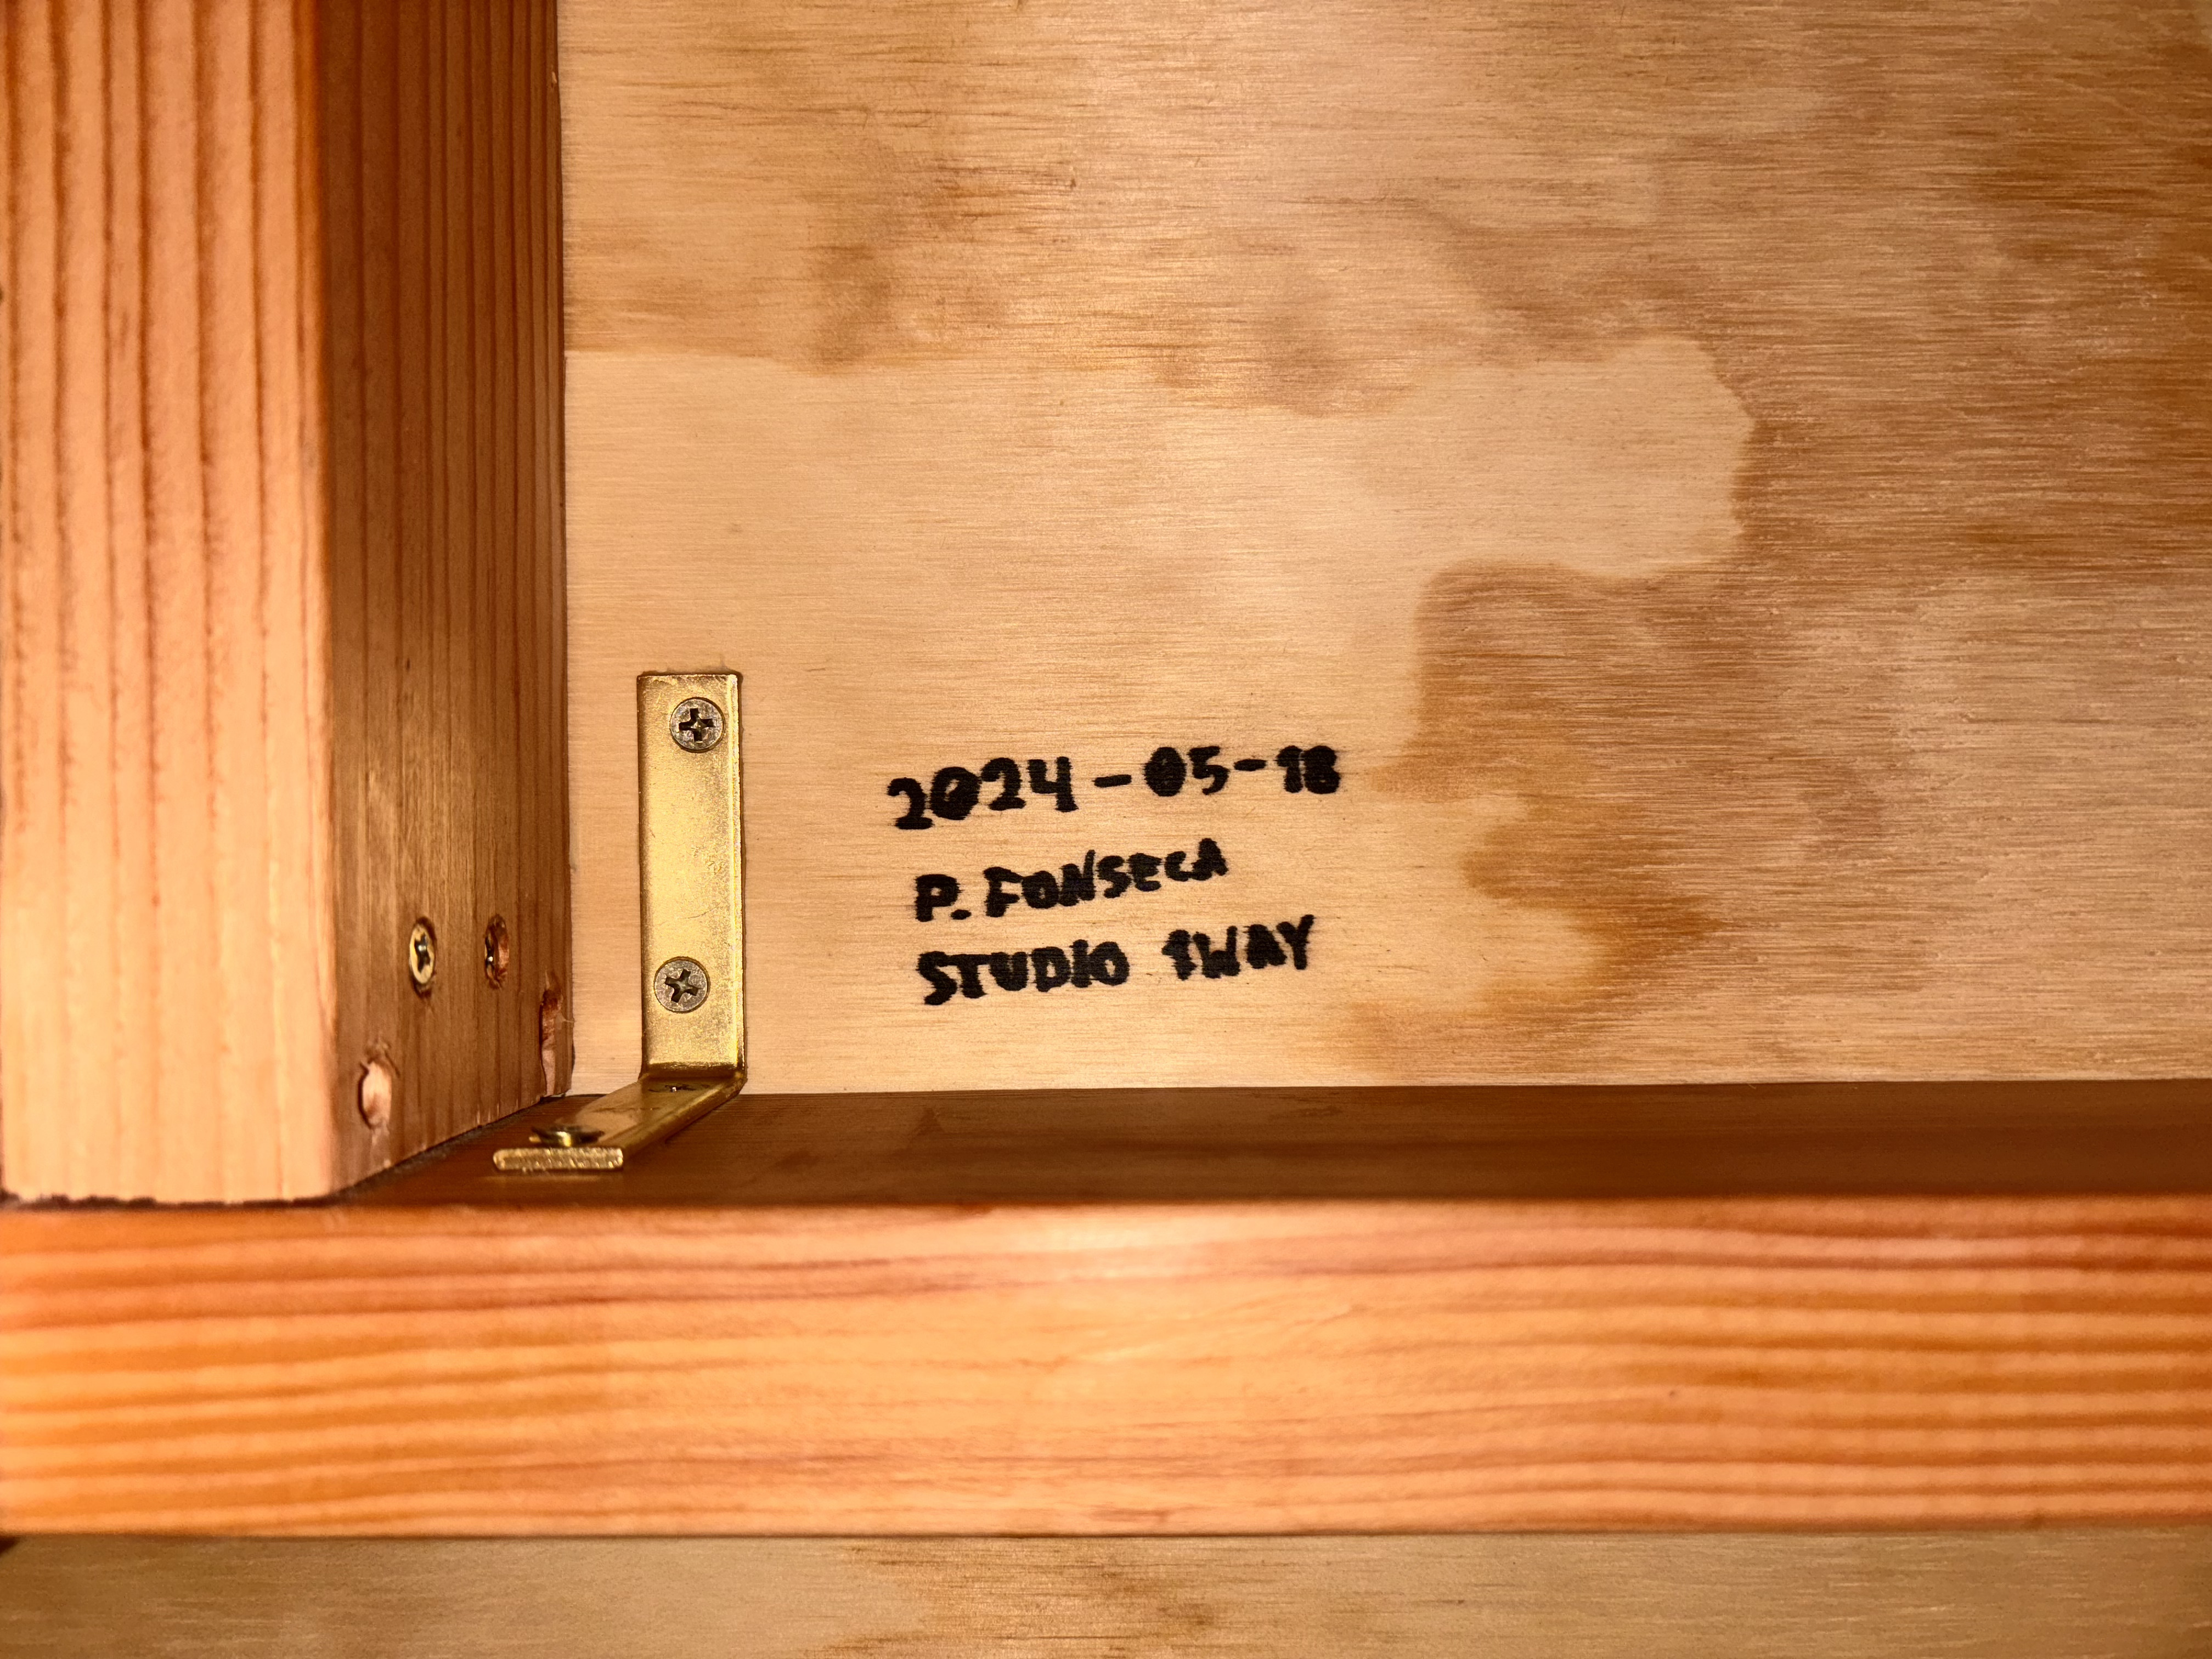 2024-05-18
P. FONSECA
STUDIO 1WAY